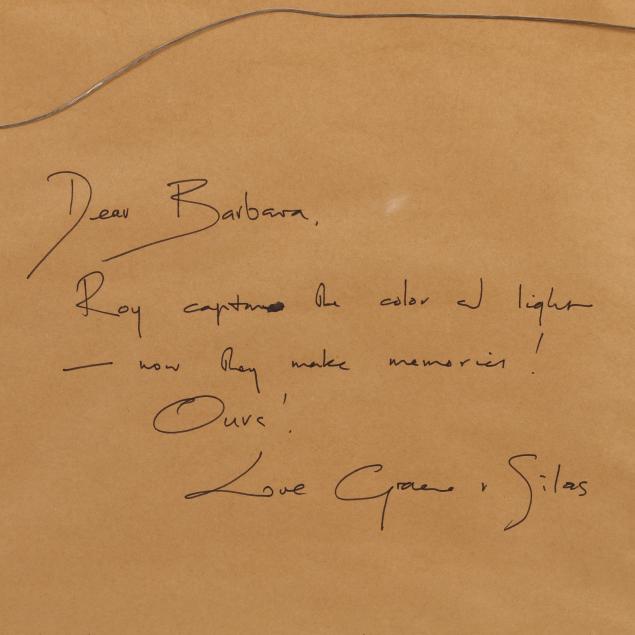 Dear Barbara,
Roy captures the color and light
— now they make memories!
Ours!
Love Graeme + Silas